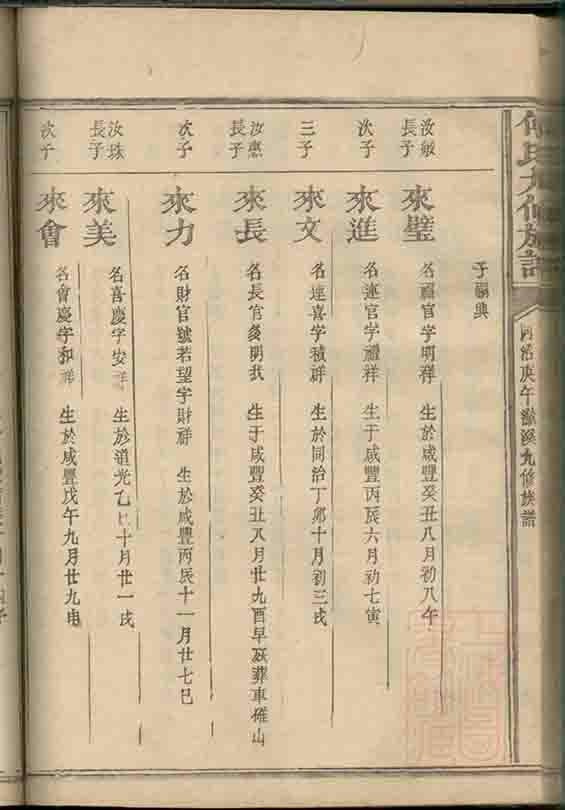 氏九修族譜
同治庚午 溪九修族譜
子福典
汝敏
長子
來璧
名福官字明祥 生於咸豐癸丑八月初八午
次子
來進
名連官字禮祥 生于咸豐丙辰六月初七寅
三子
來文
名連喜字積祥 生於同治丁卯十月初三戌
汝惠
長子
來長
名長官 明哉 生于咸豐癸丑八月廿九酉早 葬車碓山
次子
來力
名財官號若望字財祥 生於咸豐丙辰十一月廿七巳
汝珠
長子
來美
名喜慶字安祥 生於道光乙巳十月廿一戌
次子
來會
名會慶字和祥 生於咸豐戊午九月廿九申